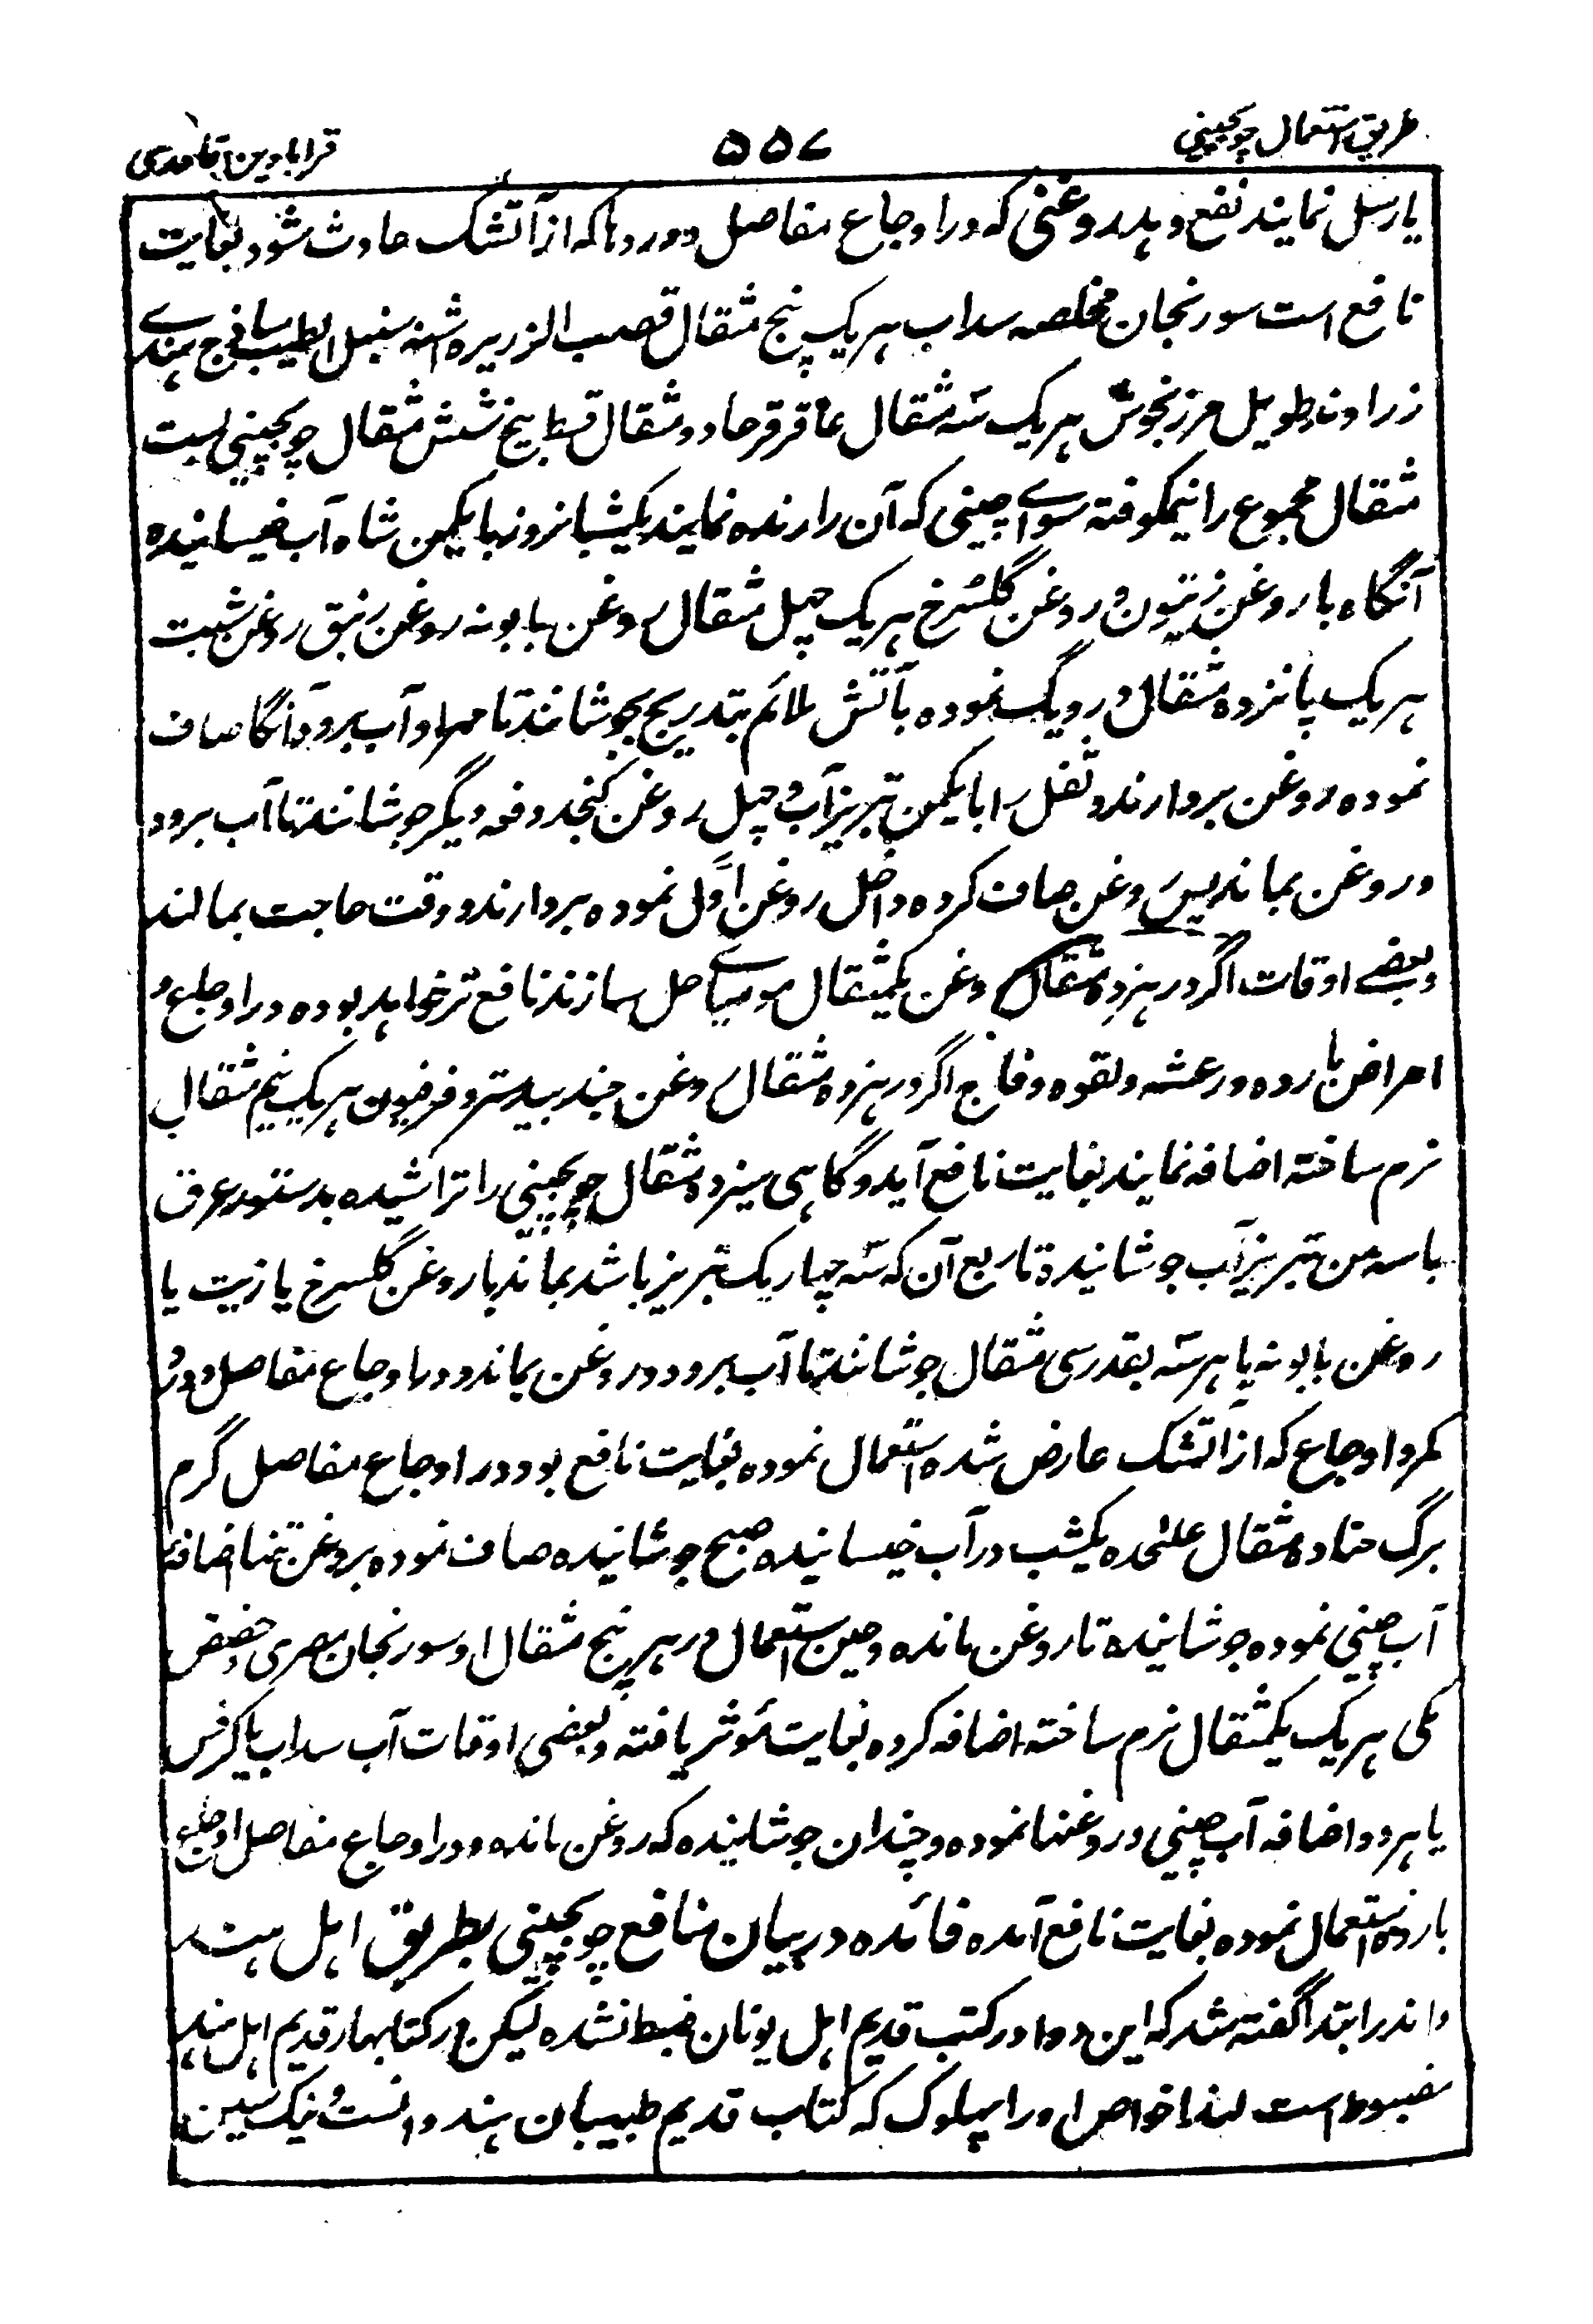 طریق استعمال چوبچینی
۵۵۷
قرابادین قادری
یا رسل نمایند نفع دہد روغنی کہ در اوجاع مفاصل و دردہا کہ از آتشک حادث شود بغایت
نافع است سورنجان مخلصہ سداب ہریک پنج مثقال قصب الزریرہ اشنہ سنبل الطیب ساذج ہندے
زراوند طویل مرزنجوش ہریک سہ مثقال عاقرقرحا دو مثقال قسط بیخ شش مثقال چوبچینی بست
مثقال مجموع را نیمکوفتہ سواے چینی کہ آن را رندہ نمایند یکشبانروز با یکمن شاہ آب خیسانیدہ
آنگاہ با روغن زیتون و روغن گلسرخ ہریک چہل مثقال روغن بابونہ روغن زنبق روغن شبت
ہریک پانزدہ مثقال در دیگ نمودہ بآتش ملائم بتدریج بجوشانند تا مہرا و آب برود آنگاہ صاف
نمودہ روغن بردارند و ثفل را با یکمن تبریز آب و چہل روغن کنجد دفعہ دیگر جوشانند تا آب برود
و روغن بماند پس روغن صاف کردہ داخل روغن اوّل نمودہ بردارند و وقت حاجت بمالند
و بعضے اوقات اگر در ہر دہ مثقال روغن یکمثقال مومیاے حل سازند نافع تر خواہد بود و در اوجاع و
امراض باردہ و رعشہ و لقوہ و فالج اگر در ہر دہ مثقال روغن جندبیدستر و فرفیون ہریک نیم مثقال
نرم ساختہ اضافہ نمایند بغایت نافع آید و گاہی سیزدہ مثقال چوبچینی را تراشیدہ بدستور عرق
با سہ من تبریز آب جوشانیدہ تا ربع آن کہ سہ چہاریک تبریز باشد بماند با روغن گلسرخ یا زیت یا
روغن بابونہ یا ہر سہ بقدر سی مثقال جوشانند تا آب برود و روغن بماند و در اوجاع مفاصل و درد
کمر و اوجاع کہ از آتشک عارض شدہ استعمال نمودہ بغایت نافع بود و در اوجاع مفاصل گرم
برگ حنا دہ مثقال علٰحدہ یکشب در آب خیسانیدہ صبح جوشانیدہ صاف نمودہ بروغن تنہا اضافہ
آب چینی نمودہ جوشانیدہ تا روغن ماندہ و حین استعمال در ہر پنج مثقال او سورنجان مصری و حضض
مکی ہریک یکمثقال نرم ساختہ اضافہ کردہ بغایت مؤثر یافتہ و بعضی اوقات آب سداب یا کرفس
یا ہر دو اضافہ آب چینی و روغنہا نمودہ و چندان جوشانیدہ کہ روغن ماندہ و در اوجاع مفاصل اوجاع
باردہ استعمال نمودہ بغایت نافع آمدہ فائدہ در بیان منافع چوبچینی بطریق اہل ہند
و اندر ابتدا گفتہ شد کہ این دوا در کتب قدیم اہل یونان ضبط نشدہ لیکن در کتابہاء قدیم اہل ہند
مضبوط است لہذا خواص او را بہلوک کہ کتاب قدیم طبیبان ہند و انست و نیک سین